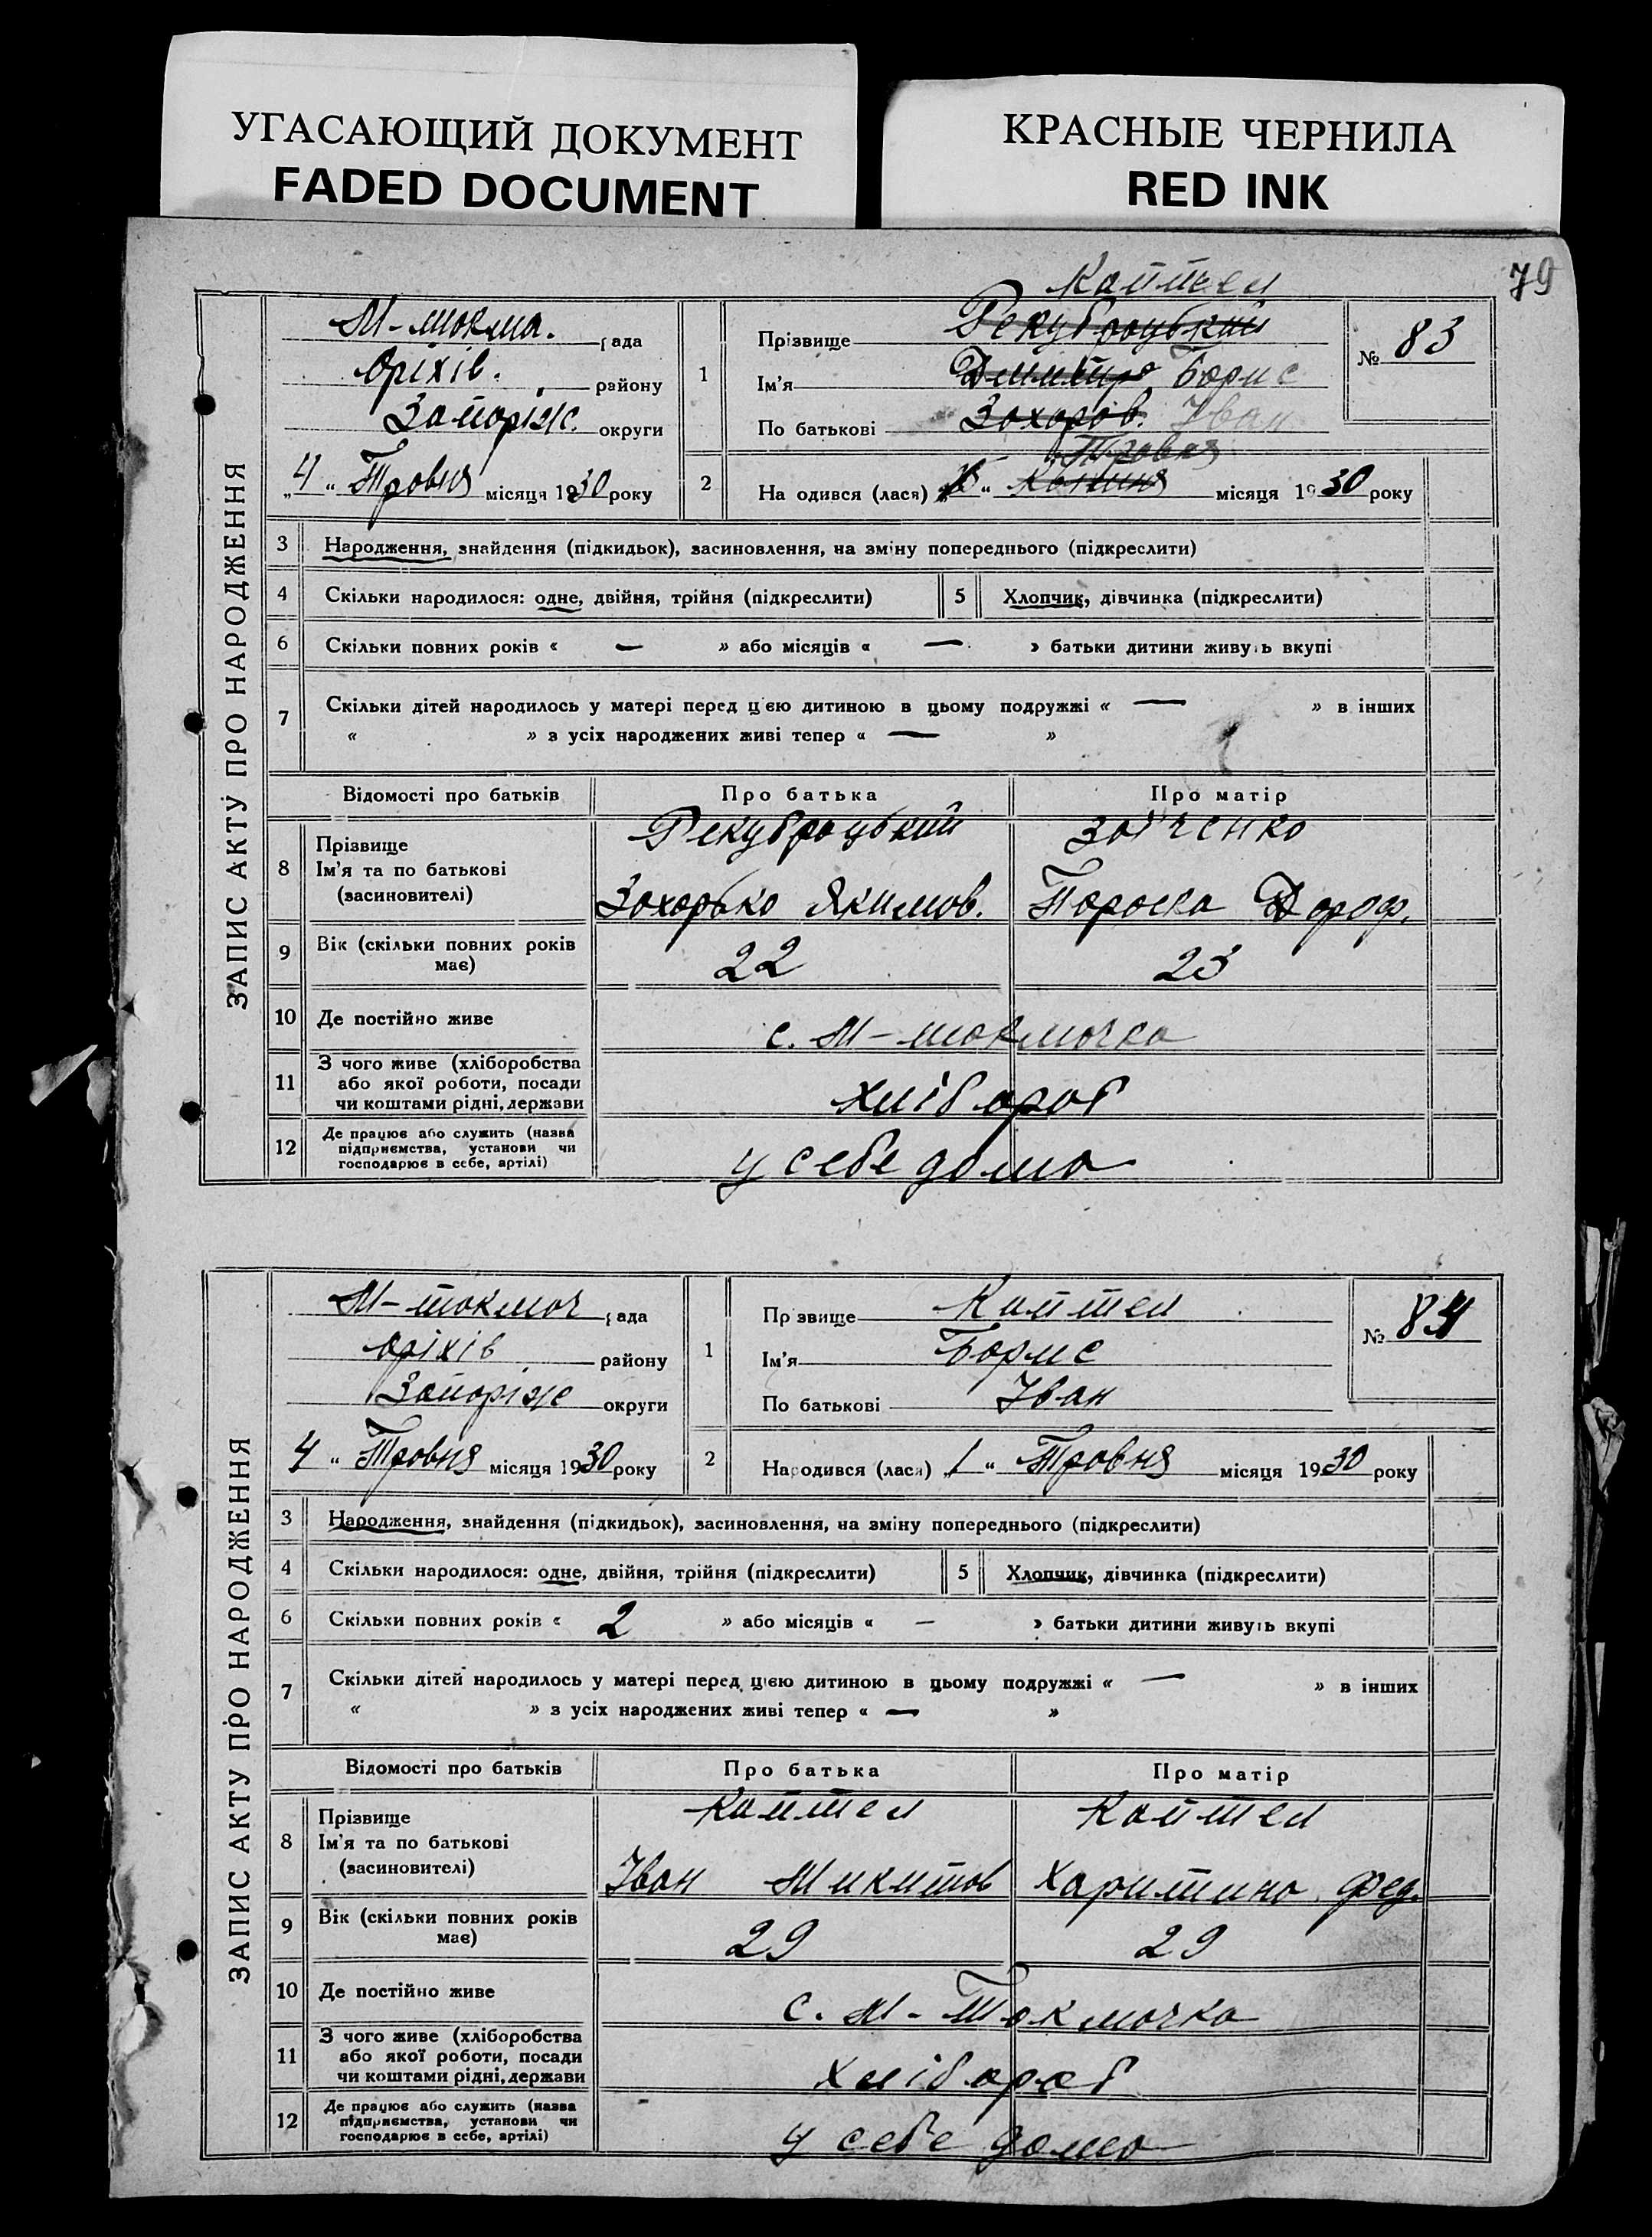 УГАСАЮЩИЙ ДОКУМЕНТ
FADED DOCUMENT
КРАСНЫЕ ЧЕРНИЛА
RED INK
79
ЗАПИС АКТУ ПРО НАРОДЖЕННЯ
М-токма. рада
Оріхів. району
Запоріж. округи
„4" Травня місяця 1930 року
1
Каптел
Прізвище Рекубрацький
Ім'я Дмитро Борис
По батькові Захаров. Іван
№ 83
Травня
2 На одився (лася) " Квітня місяця 1930 року
3 Народження, знайдення (підкидьок), засиновлення, на зміну попереднього (підкреслити)
4 Скільки народилося: одне, двійня, трійня (підкреслити) 5 Хлопчик, дівчинка (підкреслити)
6 Скільки повних років « — » або місяців « — » батьки дитини живуть вкупі
7 Скільки дітей народилось у матері перед цією дитиною в цьому подружжі « — » в інших
« » з усіх народжених живі тепер « — »
Відомості про батьків Про батька Про матір
8 Прізвище Рекубрацький Заїченко
Ім'я та по батькові
(засиновителі) Захарько Якимов. Параска Дороф.
9 Вік (скільки повних років має) 22 23
10 Де постійно живе с. М-токмачка
11 З чого живе (хліборобства
або якої роботи, посади
чи коштами рідні, держави хлібороб
12 Де працює або служить (назва
підприємства, установи чи
господарює в себе, артілі) у себе дома
ЗАПИС АКТУ ПРО НАРОДЖЕННЯ
М-токмач рада
Оріхів району
Запоріж округи
4 " Травня місяця 1930 року
1 Пр звище Каптел
Ім'я Борис
По батькові Іван
№ 84
2 Народився (лася) „1" Травня місяця 1930 року
3 Народження, знайдення (підкидьок), засиновлення, на зміну попереднього (підкреслити)
4 Скільки народилося: одне, двійня, трійня (підкреслити) 5 Хлопчик, дівчинка (підкреслити)
6 Скільки повних років « 2 » або місяців « — » батьки дитини живуть вкупі
7 Скільки дітей народилось у матері перед цією дитиною в цьому подружжі « — » в інших
« » з усіх народжених живі тепер « — »
Відомості про батьків Про батька Про матір
8 Прізвище Каптел Каптел
Ім'я та по батькові
(засиновителі) Іван Микитов Харитина Фед.
9 Вік (скільки повних років має) 29 29
10 Де постійно живе с. М-Токмачка
11 З чого живе (хліборобства
або якої роботи, посади
чи коштами рідні, держави хлібороб
12 Де працює або служить (назва
підприємства, установи чи
господарює в себе, артілі) у себе дома